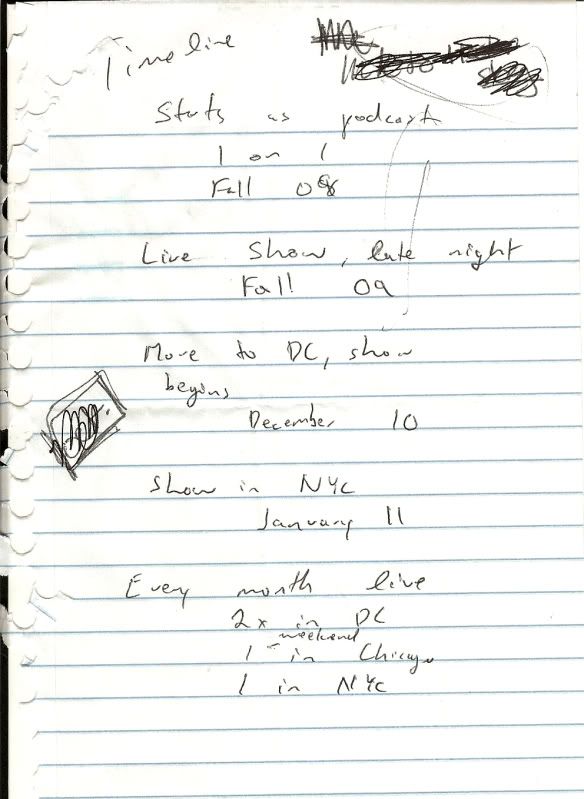 Timeline
Starts as podcast
1 on 1
Fall 08
Live Show, late night
Fall 09
Move to DC, show
begins
December 10
Show in NYC
January 11
Every month live
2x in DC
weekend
1 in Chicago
1 in NYC